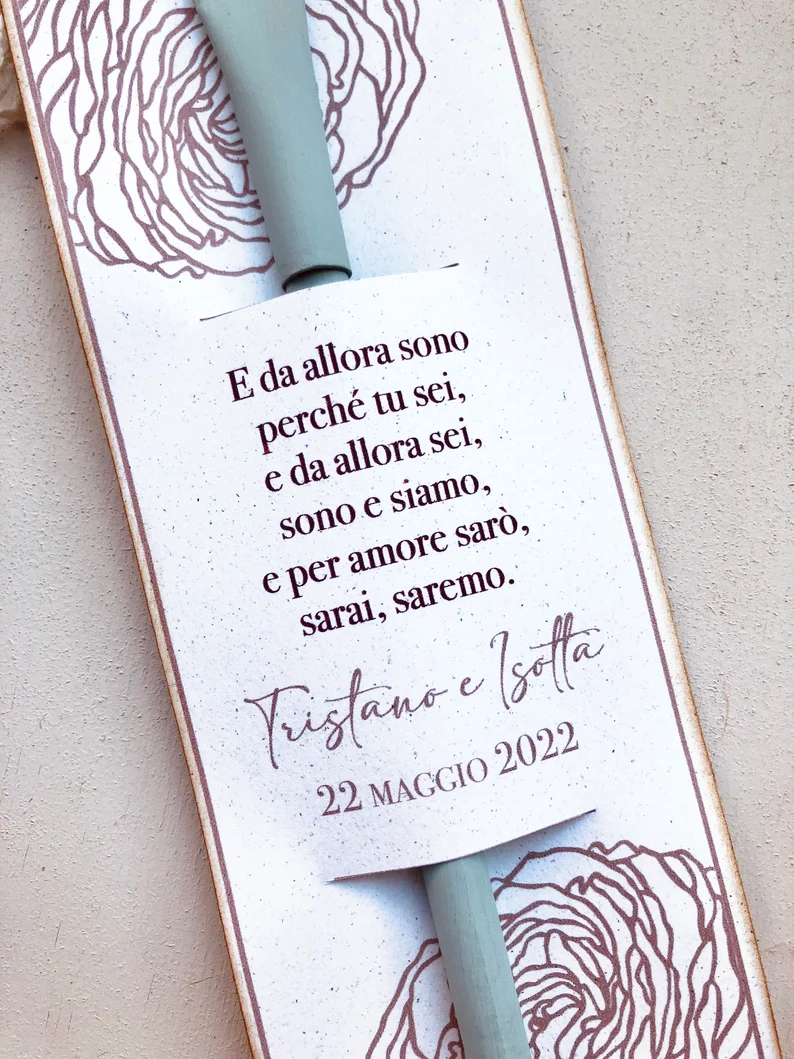 E da allora sono
perché tu sei,
e da allora sei,
sono e siamo,
e per amore sarò,
sarai, saremo.
Tristano e Isotta
22 MAGGIO 2022